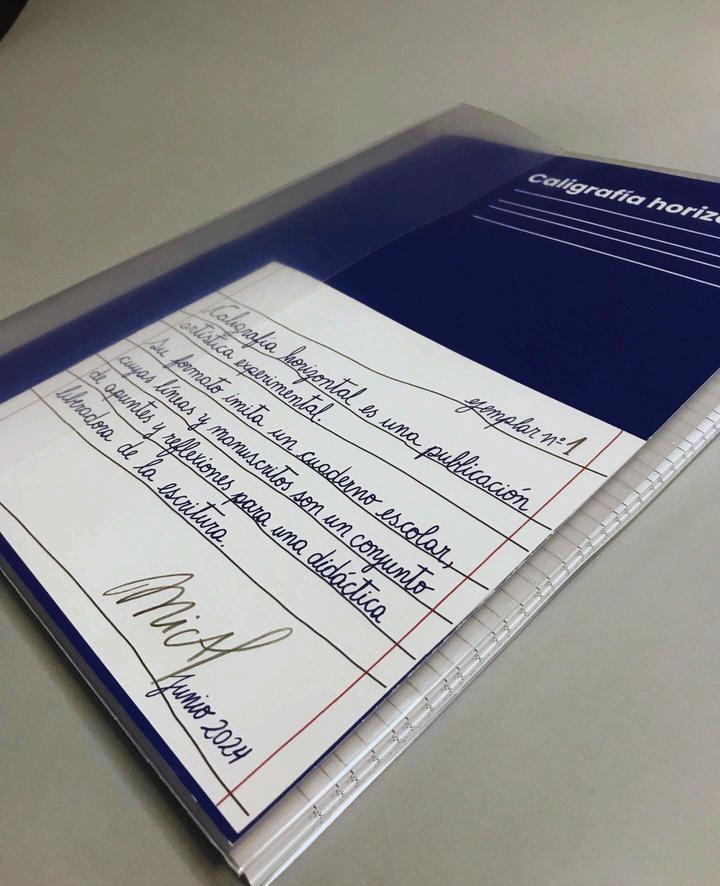 Caligrafía horizo
ejemplar nº 1
Caligrafía horizontal es una publicación
artística experimental.
Su formato imita un cuaderno escolar,
cuyas líneas y manuscritos son un conjunto
de apuntes y reflexiones para una didáctica
liberadora de la escritura.
Junio 2024